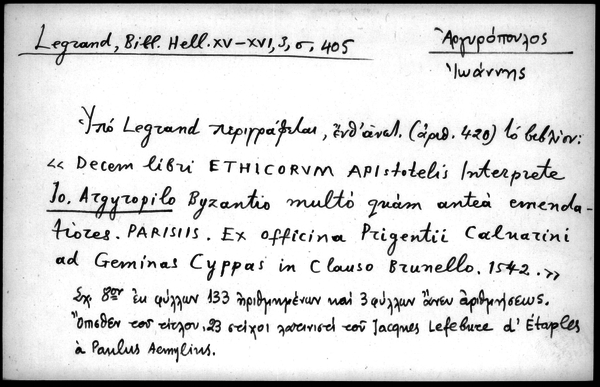 Legrand, Bibl. Hell. XV–XVI, 3, σ. 405
Ἀργυρόπουλος
Ἰωάννης
Ὑπό Legrand περιγράφεται, ἔνθ' ἀνωτ. (ἀριθ. 420) τό βιβλίον:
«Decem libri ETHICORVM ARIstotelis Interprete
Jo. Argyropilo Byzantio multó quám anteà emenda-
tiores. PARISIIS. Ex officina Prigentii Caluarini
ad Geminas Cyppas in Clauso Brunello. 1542.»
Σχ. 8ον ἐκ φύλλων 133 ἠριθμημένων καί 3 φύλλων ἄνευ ἀριθμήσεως.
Ὄπισθεν τοῦ τίτλου, 23 στίχοι λατινιστί τοῦ Jacques Lefebure d' Étaples
à Paulus Aemylius.